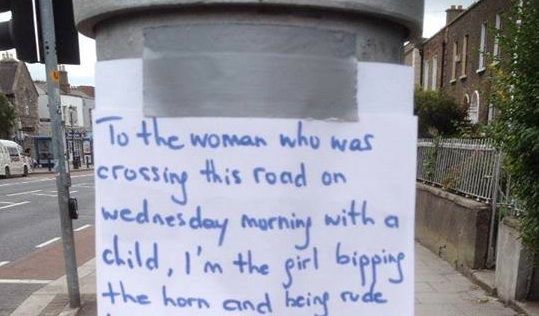 To the woman who was
crossing this road on
wednesday morning with a
child, I'm the girl bipping
the horn and being rude